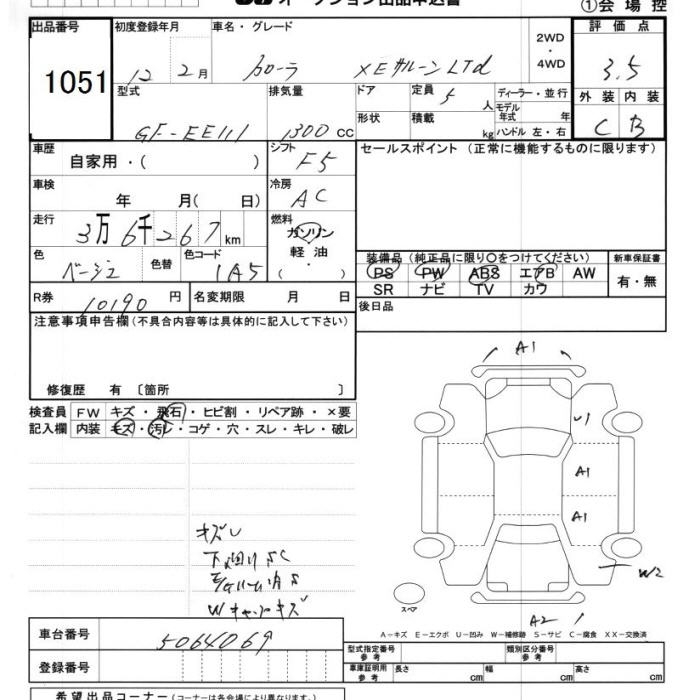 オークション出品申込書
①会場控
出品番号 初度登録年月 車名・グレード 2WD・4WD 評価点
1051 12 2月 カローラ XEサルーンLTd 3.5
型式 排気量 ドア 定員 5人 ディーラー・並行 外装 内装
GF-EE111 1300 CC 形状 積載 kg モデル年式 年 ハンドル 左・右 C B
車歴 自家用・( ) シフト F5 セールスポイント (正常に機能するものに限ります)
車検 年 月( 日) 冷房 AC
走行 3万6千267km 燃料 ガソリン 軽油 ・( )
色 ベージュ 色替 色コード 1A5
装備品 (純正品に限り○をつけてください) 新車保証書
PS PW ABS エアB AW 有・無
SR ナビ TV カワ
R券 10190 円 名変期限 月 日 後日品
注意事項申告欄 (不具合内容等は具体的に記入して下さい)
修復歴 有 [箇所 ]
検査員 FW キズ・飛石・ヒビ割・リペア跡・×要
記入欄 内装 キズ・汚レ・コゲ・穴・スレ・キレ・破レ
A1
U1
A1
A1
W2
A2
スペア
キズU
下廻りSC
A－キズ E－エクボ U－凹み W－補修跡 S－サビ C－腐食 XX－交換済
車台番号 5064069
型式指定番号 参考 類別区分番号 参考
登録番号 車庫証明用 参考 長さ cm 幅 cm 高さ cm
希望出品コーナー (コーナーは各会場により異なります。)